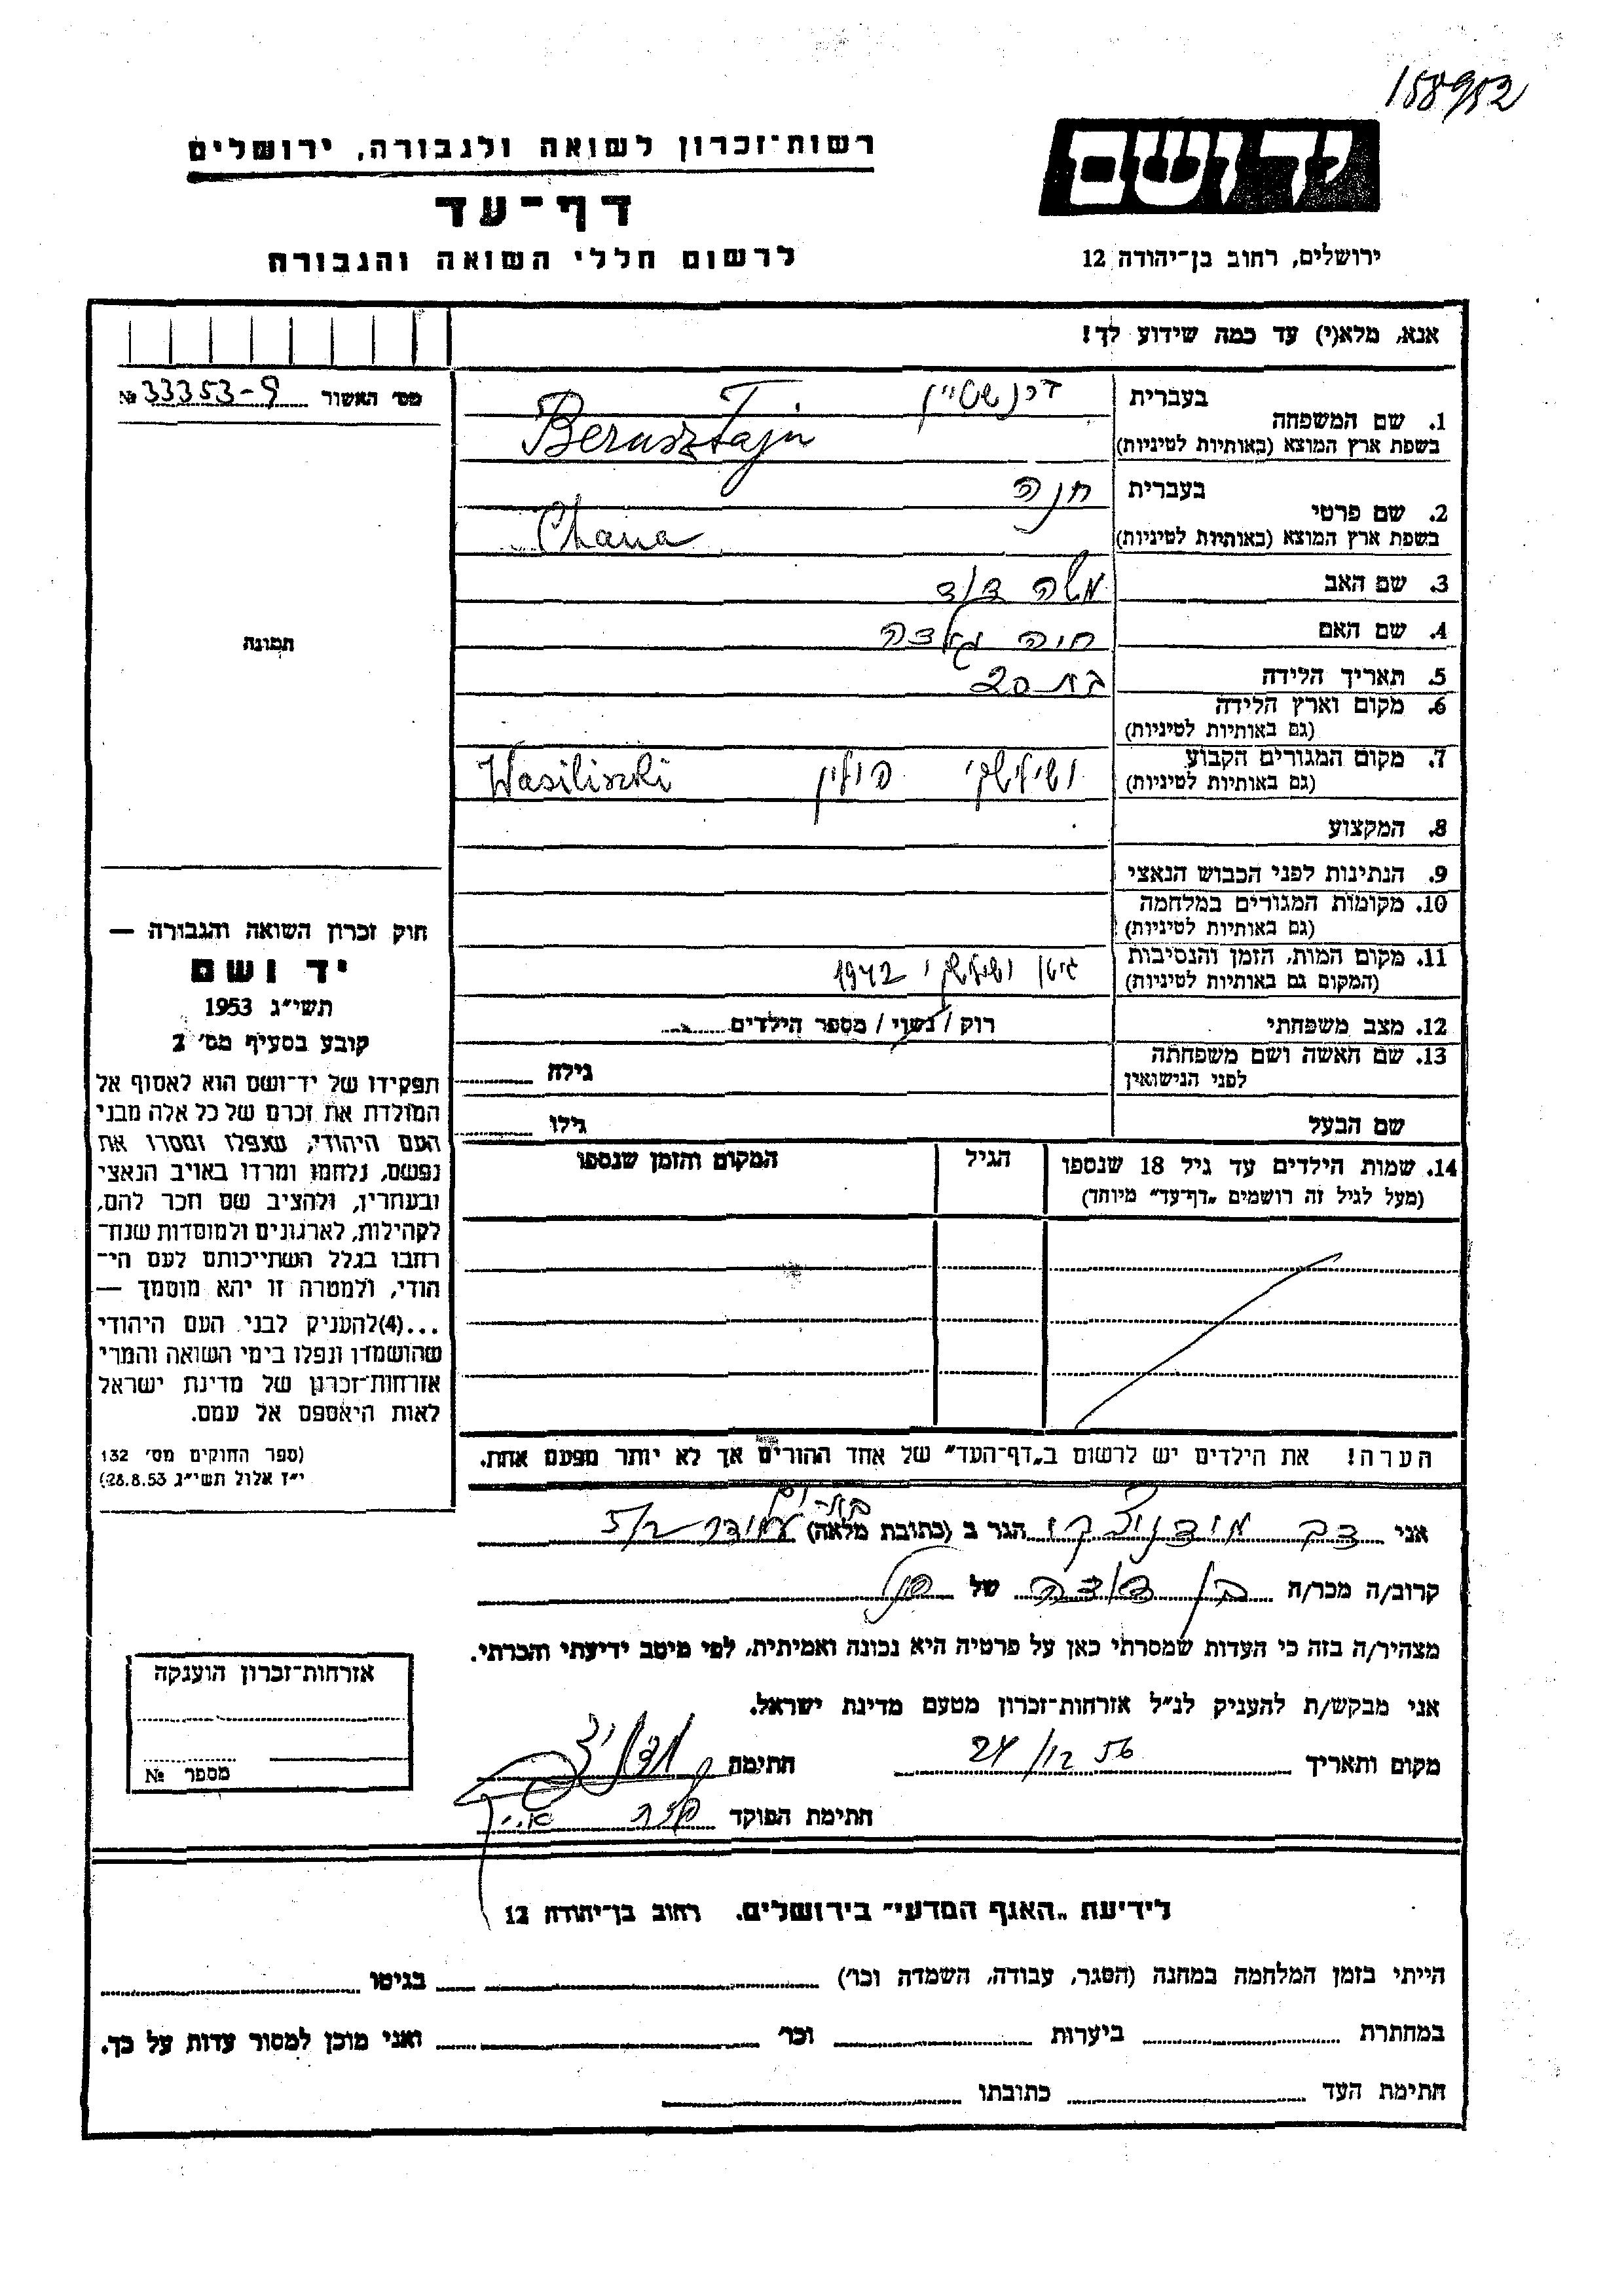 158952
יד ושם
ירושלים, רחוב בן־יהודה 12
רשות־זכרון לשואה ולגבורה, ירושלים
דף־עד
לרשום חללי השואה והגבורה
אנא, מלא(י) עד כמה שידוע לך!
מס׳ האשור 33353-9 №
תמונה
1. שם המשפחה
בעברית ברנשטיין
בשפת ארץ המוצא (באותיות לטיניות) Bernsztajn
2. שם פרטי
בעברית חנה
בשפת ארץ המוצא (באותיות לטיניות) Chana
3. שם האב משה דוד
4. שם האם חיה
5. תאריך הלידה בת 20
6. מקום וארץ הלידה
(גם באותיות לטיניות)
7. מקום המגורים הקבוע ושילישקי פולין Wasiliszki
(גם באותיות לטיניות)
8. המקצוע
9. הנתינות לפני הכבוש הנאצי
10. מקומות המגורים במלחמה
(גם באותיות לטיניות)
11. מקום המות, הזמן והנסיבות גיטו ושילישקי 1942
(המקום גם באותיות לטיניות)
12. מצב משפחתי רוק / נשוי / מספר הילדים
13. שם האשה ושם משפחתה
לפני הנישואין
גילה
שם הבעל גילו
14. שמות הילדים עד גיל 18 שנספו הגיל המקום והזמן שנספו
(מעל לגיל זה רושמים „דף־עד״ מיוחד)
הערה! את הילדים יש לרשום ב„דף־העד״ של אחד ההורים אך לא יותר מפעם אחת.
חוק זכרון השואה והגבורה —
יד ושם
תשי״ג 1953
קובע בסעיף מס׳ 2
תפקידו של יד־ושם הוא לאסוף אל
המולדת את זכרם של כל אלה מבני
העם היהודי, שנפלו ומסרו את
נפשם, נלחמו ומרדו באויב הנאצי
ובעוזריו, ולהציב שם וזכר להם,
לקהילות, לארגונים ולמוסדות שנח־
רבו בגלל השתייכותם לעם הי־
הודי, ולמטרה זו יהא מוסמך —
...(4)להעניק לבני העם היהודי
שהושמדו ונפלו בימי השואה והמרי
אזרחות־זכרון של מדינת ישראל
לאות היאספם אל עמם.
(ספר החוקים מס׳ 132
י״ז אלול תשי״ג 28.8.53)
אני דב הגר ב (כתובת מלאה) בת-ים עמידר 5/2
קרוב/ה מכר/ה בן דודה של
מצהיר/ה בזה כי העדות שמסרתי כאן על פרטיה היא נכונה ואמיתית, לפי מיטב ידיעתי והכרתי.
אני מבקש/ת להעניק לנ״ל אזרחות־זכרון מטעם מדינת ישראל.
מקום ותאריך 24/12 56 חתימה
חתימת הפוקד
אזרחות־זכרון הוענקה
מספר №
לידיעת „האגף המדעי״ בירושלים. רחוב בן־יהודה 12
הייתי בזמן המלחמה במחנה (הסגר, עבודה, השמדה וכו׳) בגיטו
במחתרת ביערות וכו׳ ואני מוכן למסור עדות על כך.
חתימת העד כתובתו